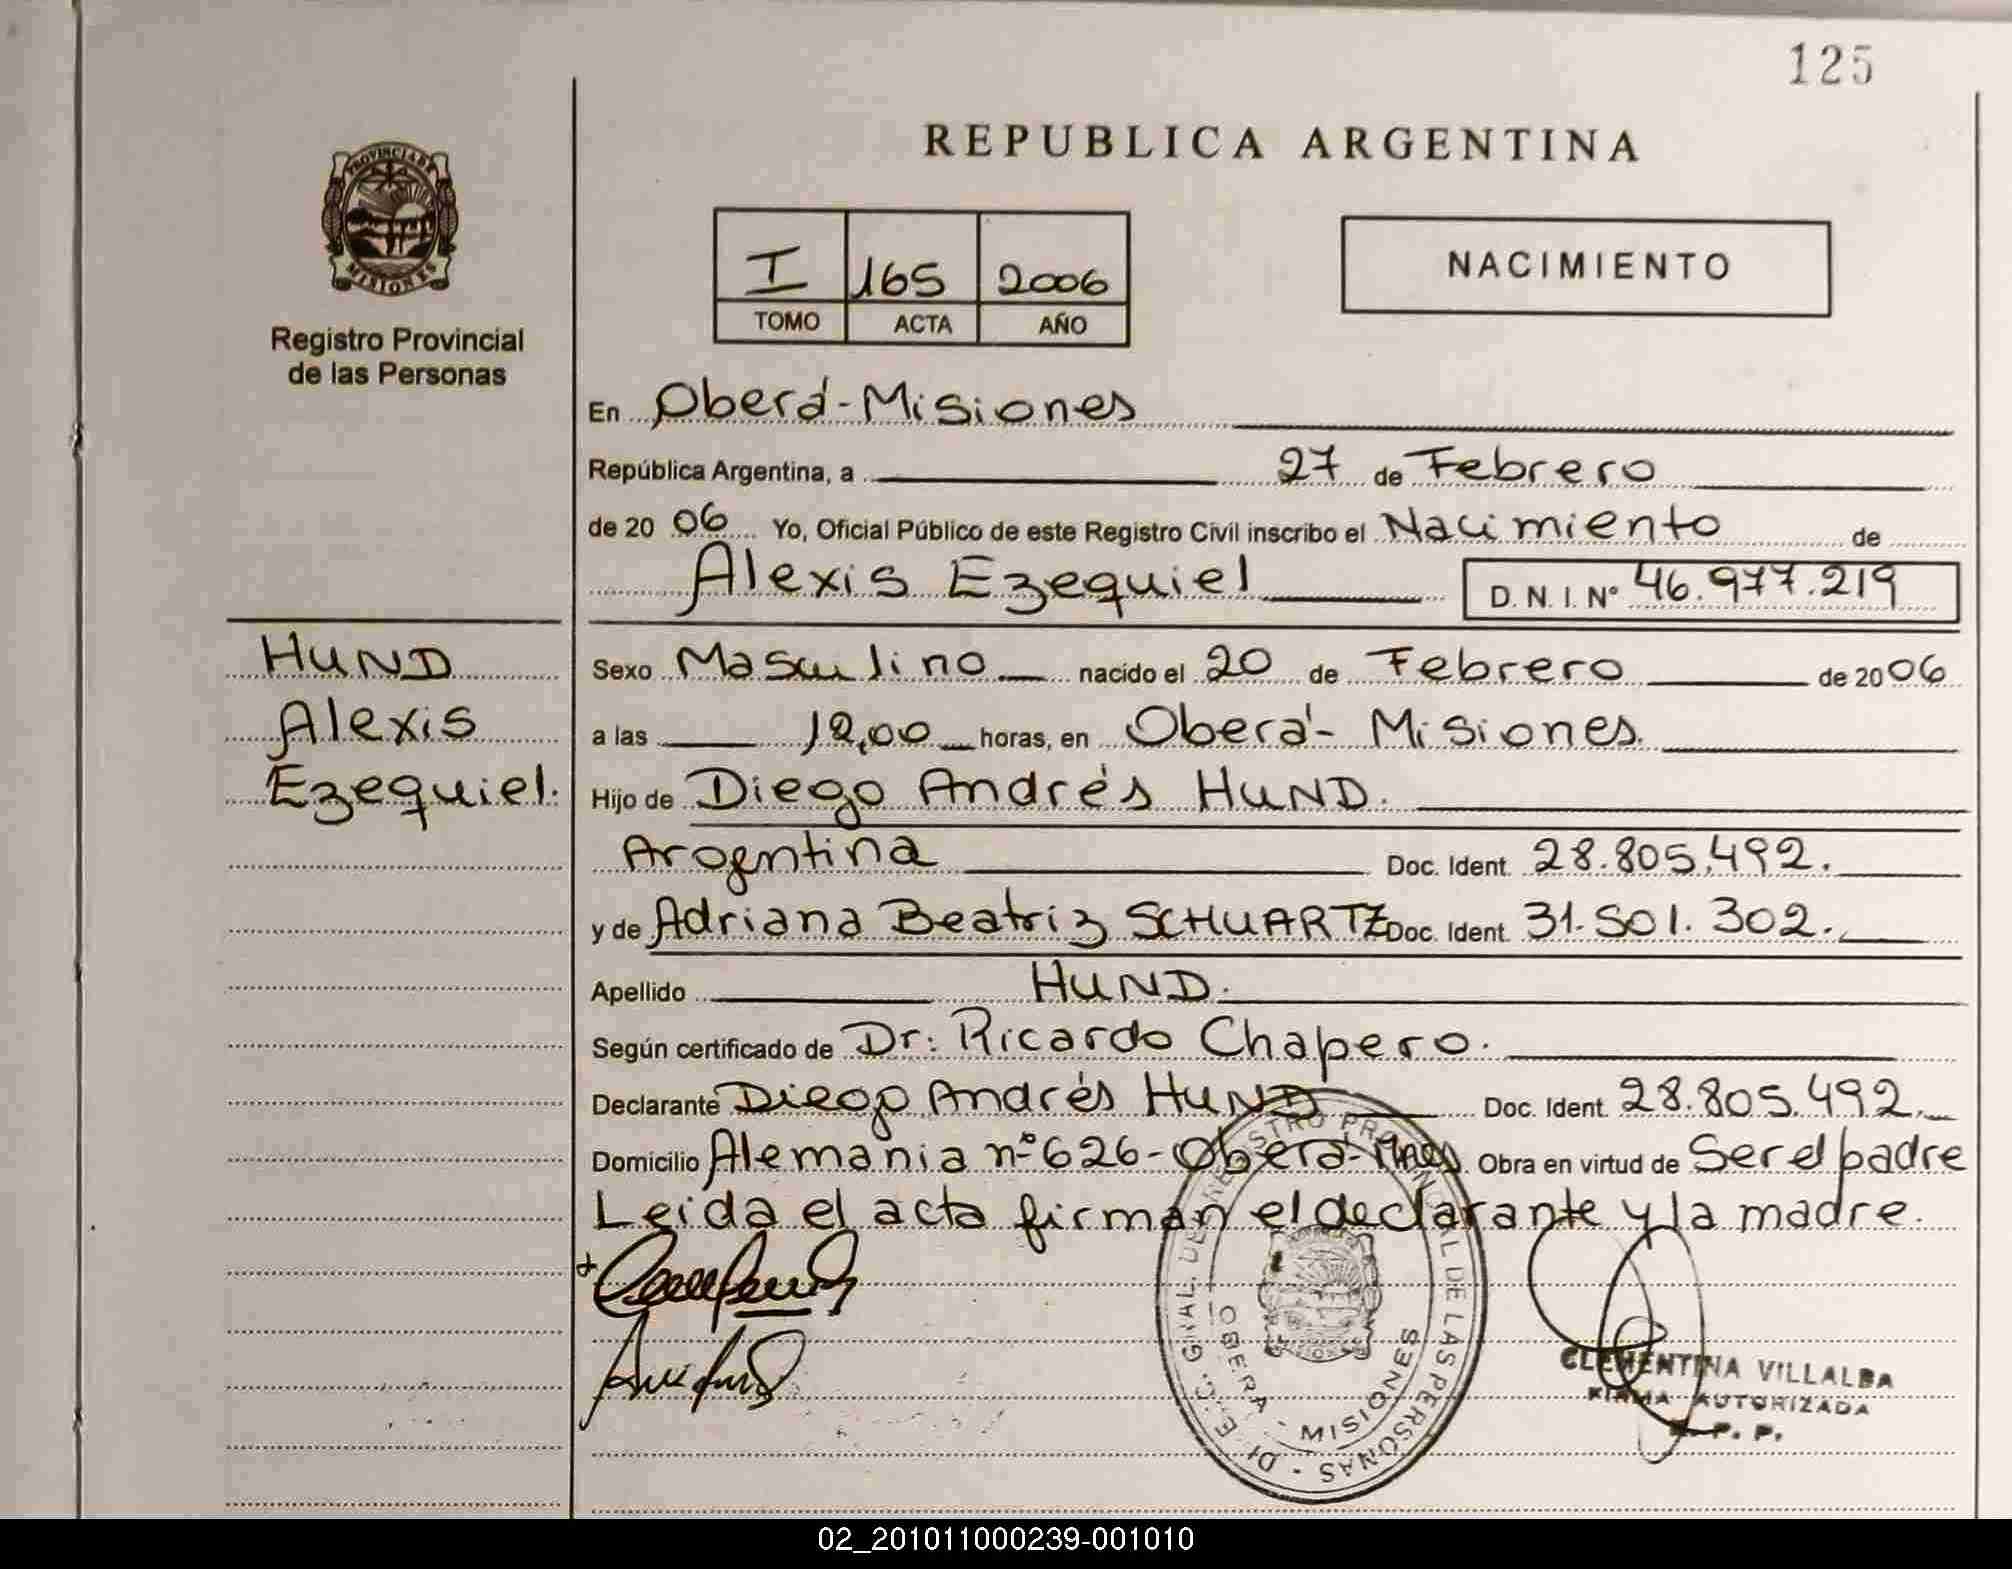 125
REPUBLICA ARGENTINA
PROVINCIA DE
MISIONES
Registro Provincial
de las Personas
I 165 2006
TOMO ACTA AÑO
NACIMIENTO
En Oberá-Misiones
República Argentina, a 27 de Febrero
de 20 06 Yo, Oficial Público de este Registro Civil inscribo el Nacimiento de
Alexis Ezequiel D. N. I. Nº 46.977.219
HUND
Alexis
Ezequiel.
Sexo Masculino nacido el 20 de Febrero de 2006
a las 12,00 horas, en Oberá- Misiones.
Hijo de Diego Andrés HUND.
Argentina Doc. Ident. 28.805.492.
y de Adriana Beatriz SCHUARTZ Doc. Ident. 31.501.302.
Apellido HUND.
Según certificado de Dr: Ricardo Chapero.
Declarante Diego Andrés HUND Doc. Ident. 28.805.492.
Domicilio Alemania nº 626-Oberá- Obra en virtud de Ser el padre
Leida el acta firman el declarante y la madre.
REGISTRO PROVINCIAL DE LAS PERSONAS
OBERA - MISIONES
CLEMENTINA VILLALBA
FIRMA AUTORIZADA
02_201011000239-001010